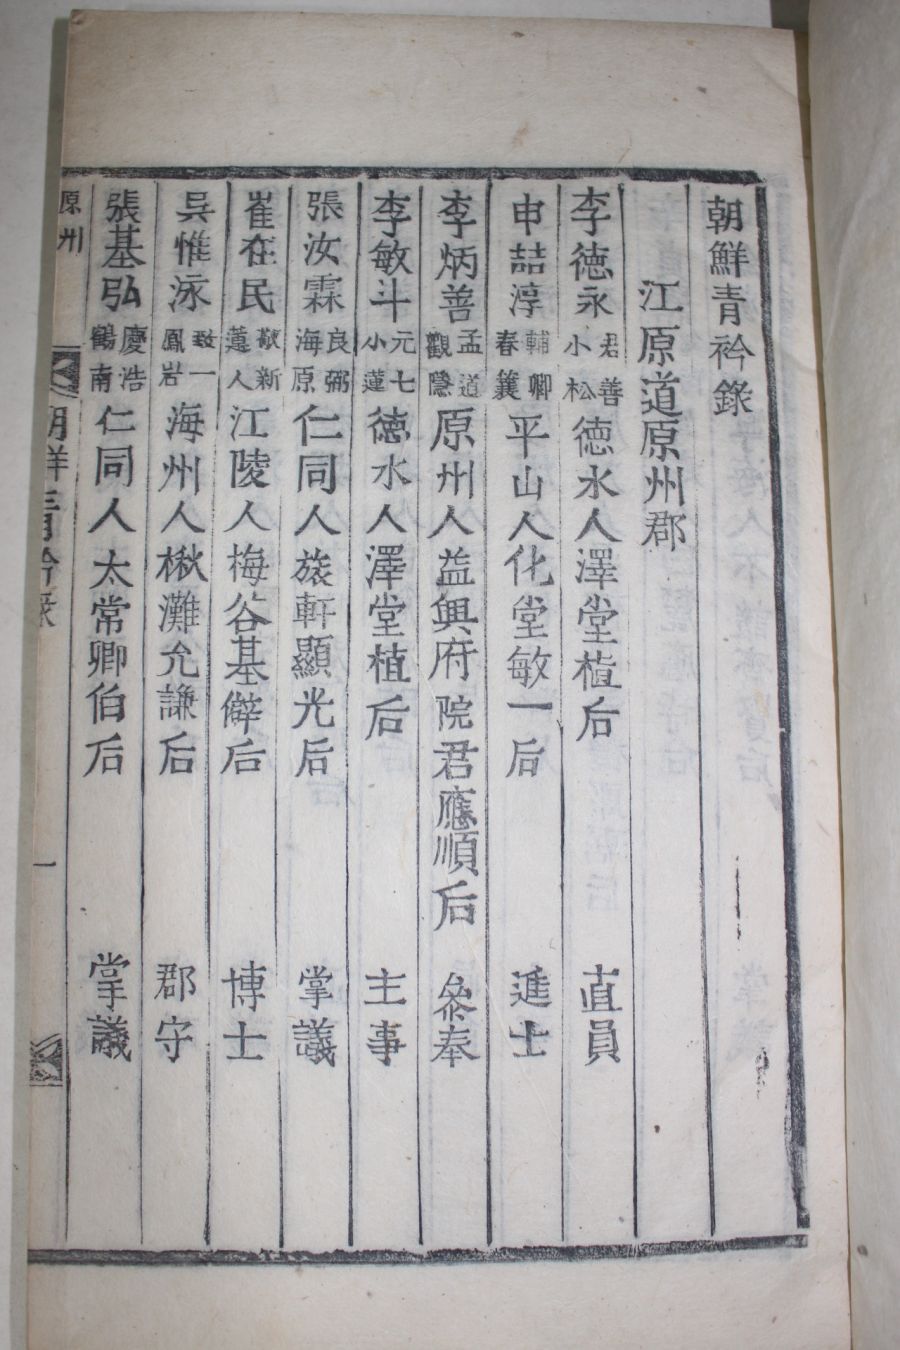 朝鮮青衿錄
江原道原州郡
李德永 君善 小松 德水人澤堂植后 直員
申喆淳 輔卿 春蘘 平山人化堂敏一后 進士
李炳善 孟道 觀隱 原州人益興府院君應順后 叅奉
李敏斗 元七 小蓮 德水人澤堂植后 主事
張汝霖 良弼 海原 仁同人旅軒顯光后 掌議
崔在民 敬新 蓮人 江陵人梅谷基澼后 博士
吳惟泳 致一 鳳岩 海州人楸灘允謙后 郡守
張基弘 慶浩 鶴南 仁同人太常卿伯后 掌議
原州
朝鮮青衿錄
一